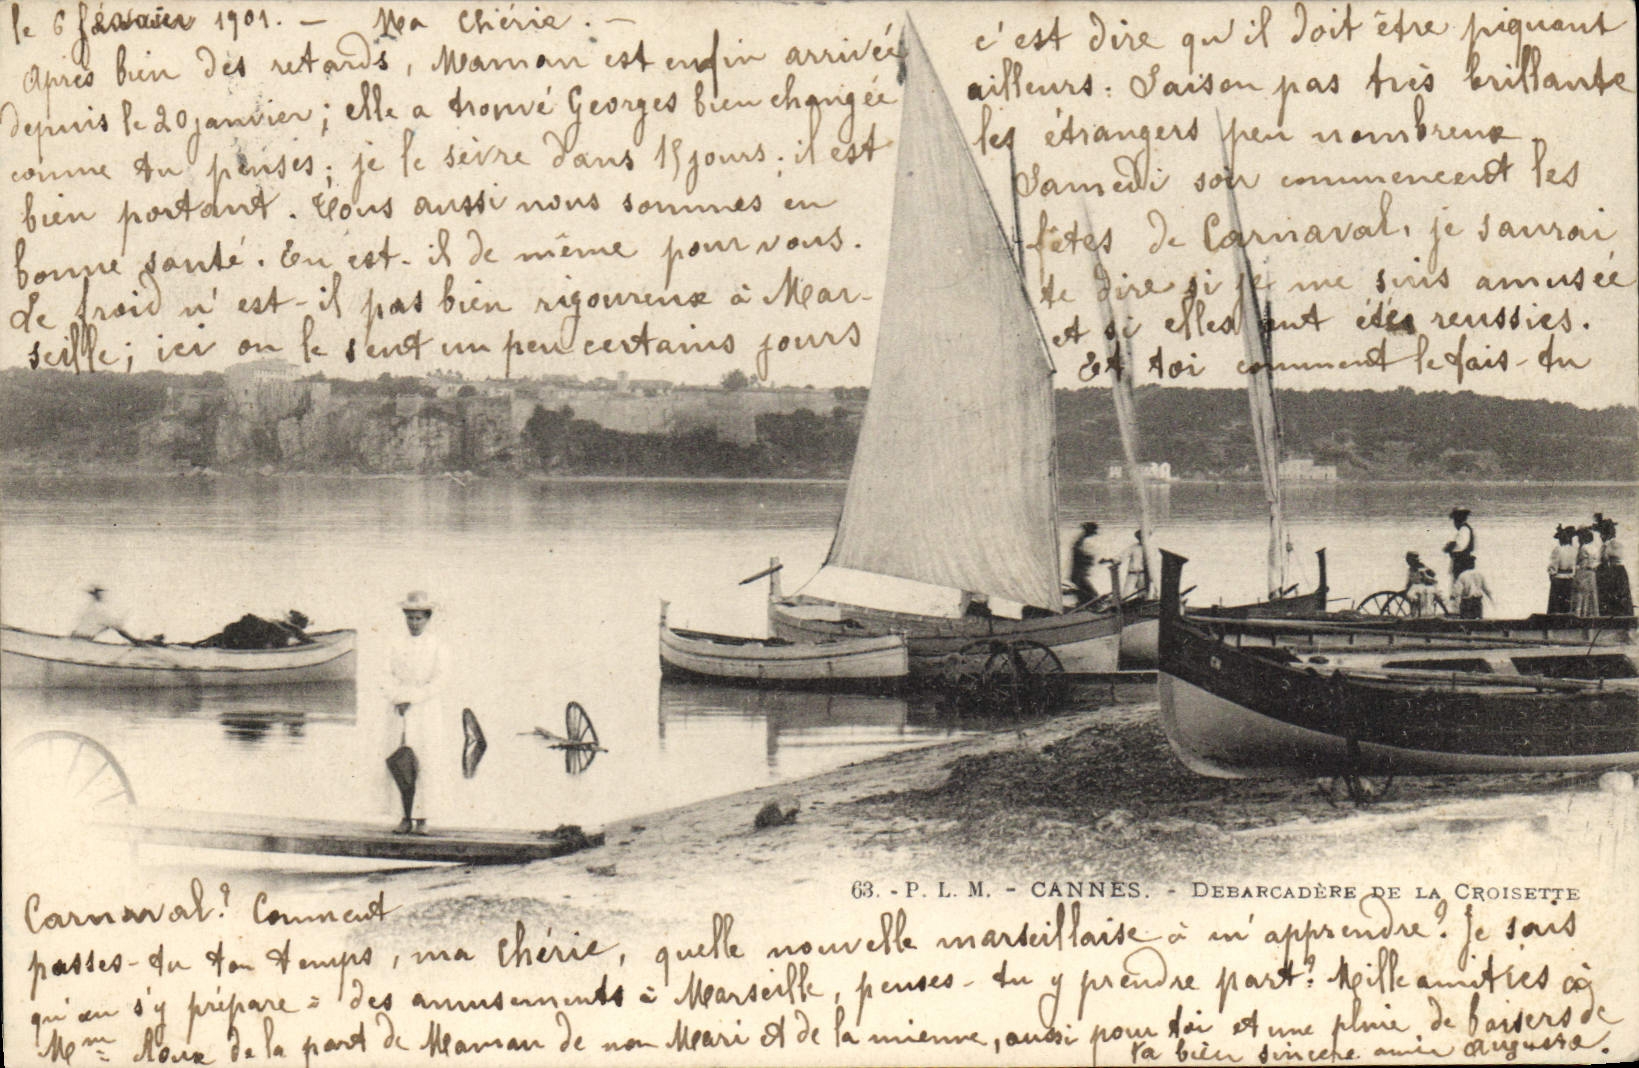 le 6 février 1901. - Ma Chérie. -
Après bien des retards, Maman est enfin arrivée
depuis le 20 janvier; elle a trouvé Georges bien changée
comme tu penses; je le sèvre dans 15 jours. il est
bien portant. Nous aussi nous sommes en
bonne santé. En est-il de même pour vous.
Le froid n'est-il pas bien rigoureux à Mar-
seille; ici on le sent un peu certains jours
c'est dire qu'il doit être piquant
ailleurs. Saison pas très brillante
les étrangers peu nombreux.
Samedi soir commencent les
fêtes de Carnaval, je saurai
te dire si je me suis amusée
et si elles ont étés reussies.
Et toi comment le fais-tu
63. - P. L. M. - CANNES. - DEBARCADÈRE DE LA CROISETTE
Carnaval? Comment
passes-tu ton temps, ma Chérie, quelle nouvelle marseillaise à m'apprendre? Je sais
qu'on s'y prépare à des amusements à Marseille, penses-tu y prendre part? Mille amitiés à
Mme Roux de la part de Maman de mon Mari et de la mienne, aussi pour toi et une pluie de baisers de
ta bien sincere amie Augusta.